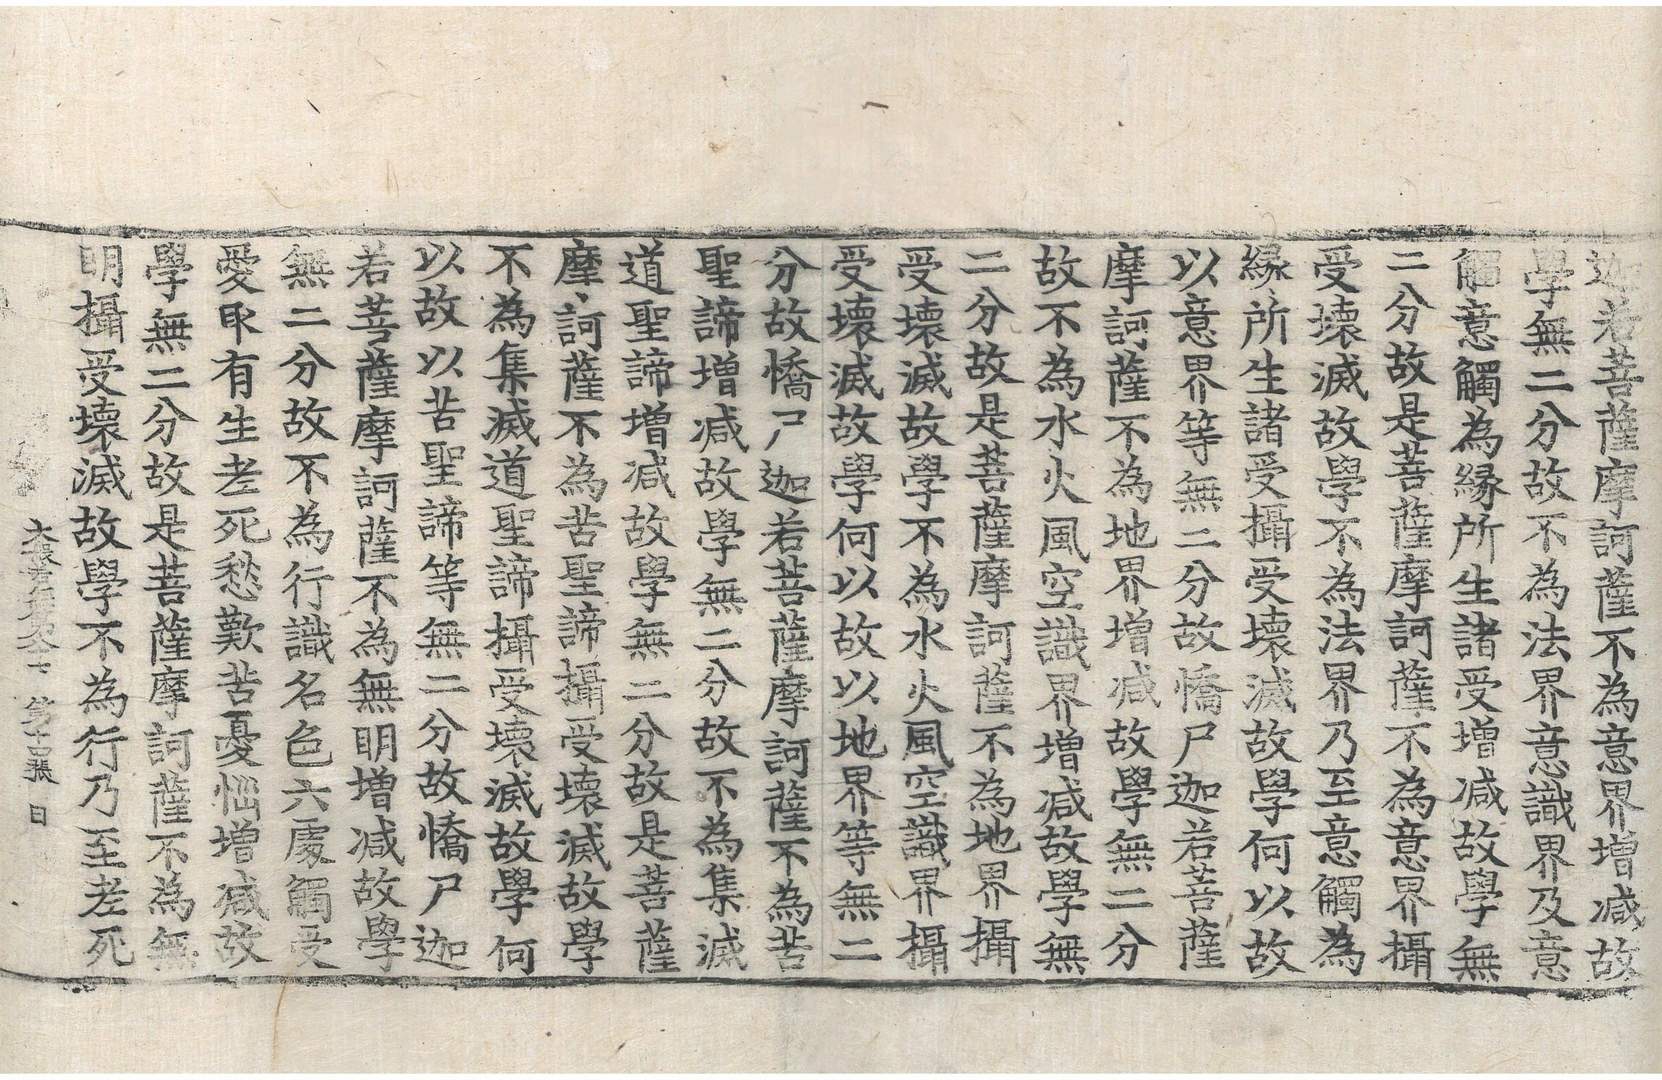 迦若菩薩摩訶薩不為意界增减故
學無二分故不為法界意識界及意
觸意觸為縁所生諸受增减故學無
二分故是菩薩摩訶薩不為意界攝
受壞滅故學不為法界乃至意觸為
縁所生諸受攝受壞滅故學何以故
以意界等無二分故憍尸迦若菩薩
摩訶薩不為地界增减故學無二分
故不為水火風空識界增减故學無
二分故是菩薩摩訶薩不為地界攝
受壞滅故學不為水火風空識界攝
受壞滅故學何以故以地界等無二
分故憍尸迦若菩薩摩訶薩不為苦
聖諦增减故學無二分故不為集滅
道聖諦增减故學無二分故是菩薩
摩訶薩不為苦聖諦攝受壞滅故學
不為集滅道聖諦攝受壞滅故學何
以故以苦聖諦等無二分故憍尸迦
若菩薩摩訶薩不為無明增减故學
無二分故不為行識名色六處觸受
愛取有生老死愁歎苦憂惱增减故
學無二分故是菩薩摩訶薩不為無
明攝受壞滅故學不為行乃至老死
大般若 第十四張 日